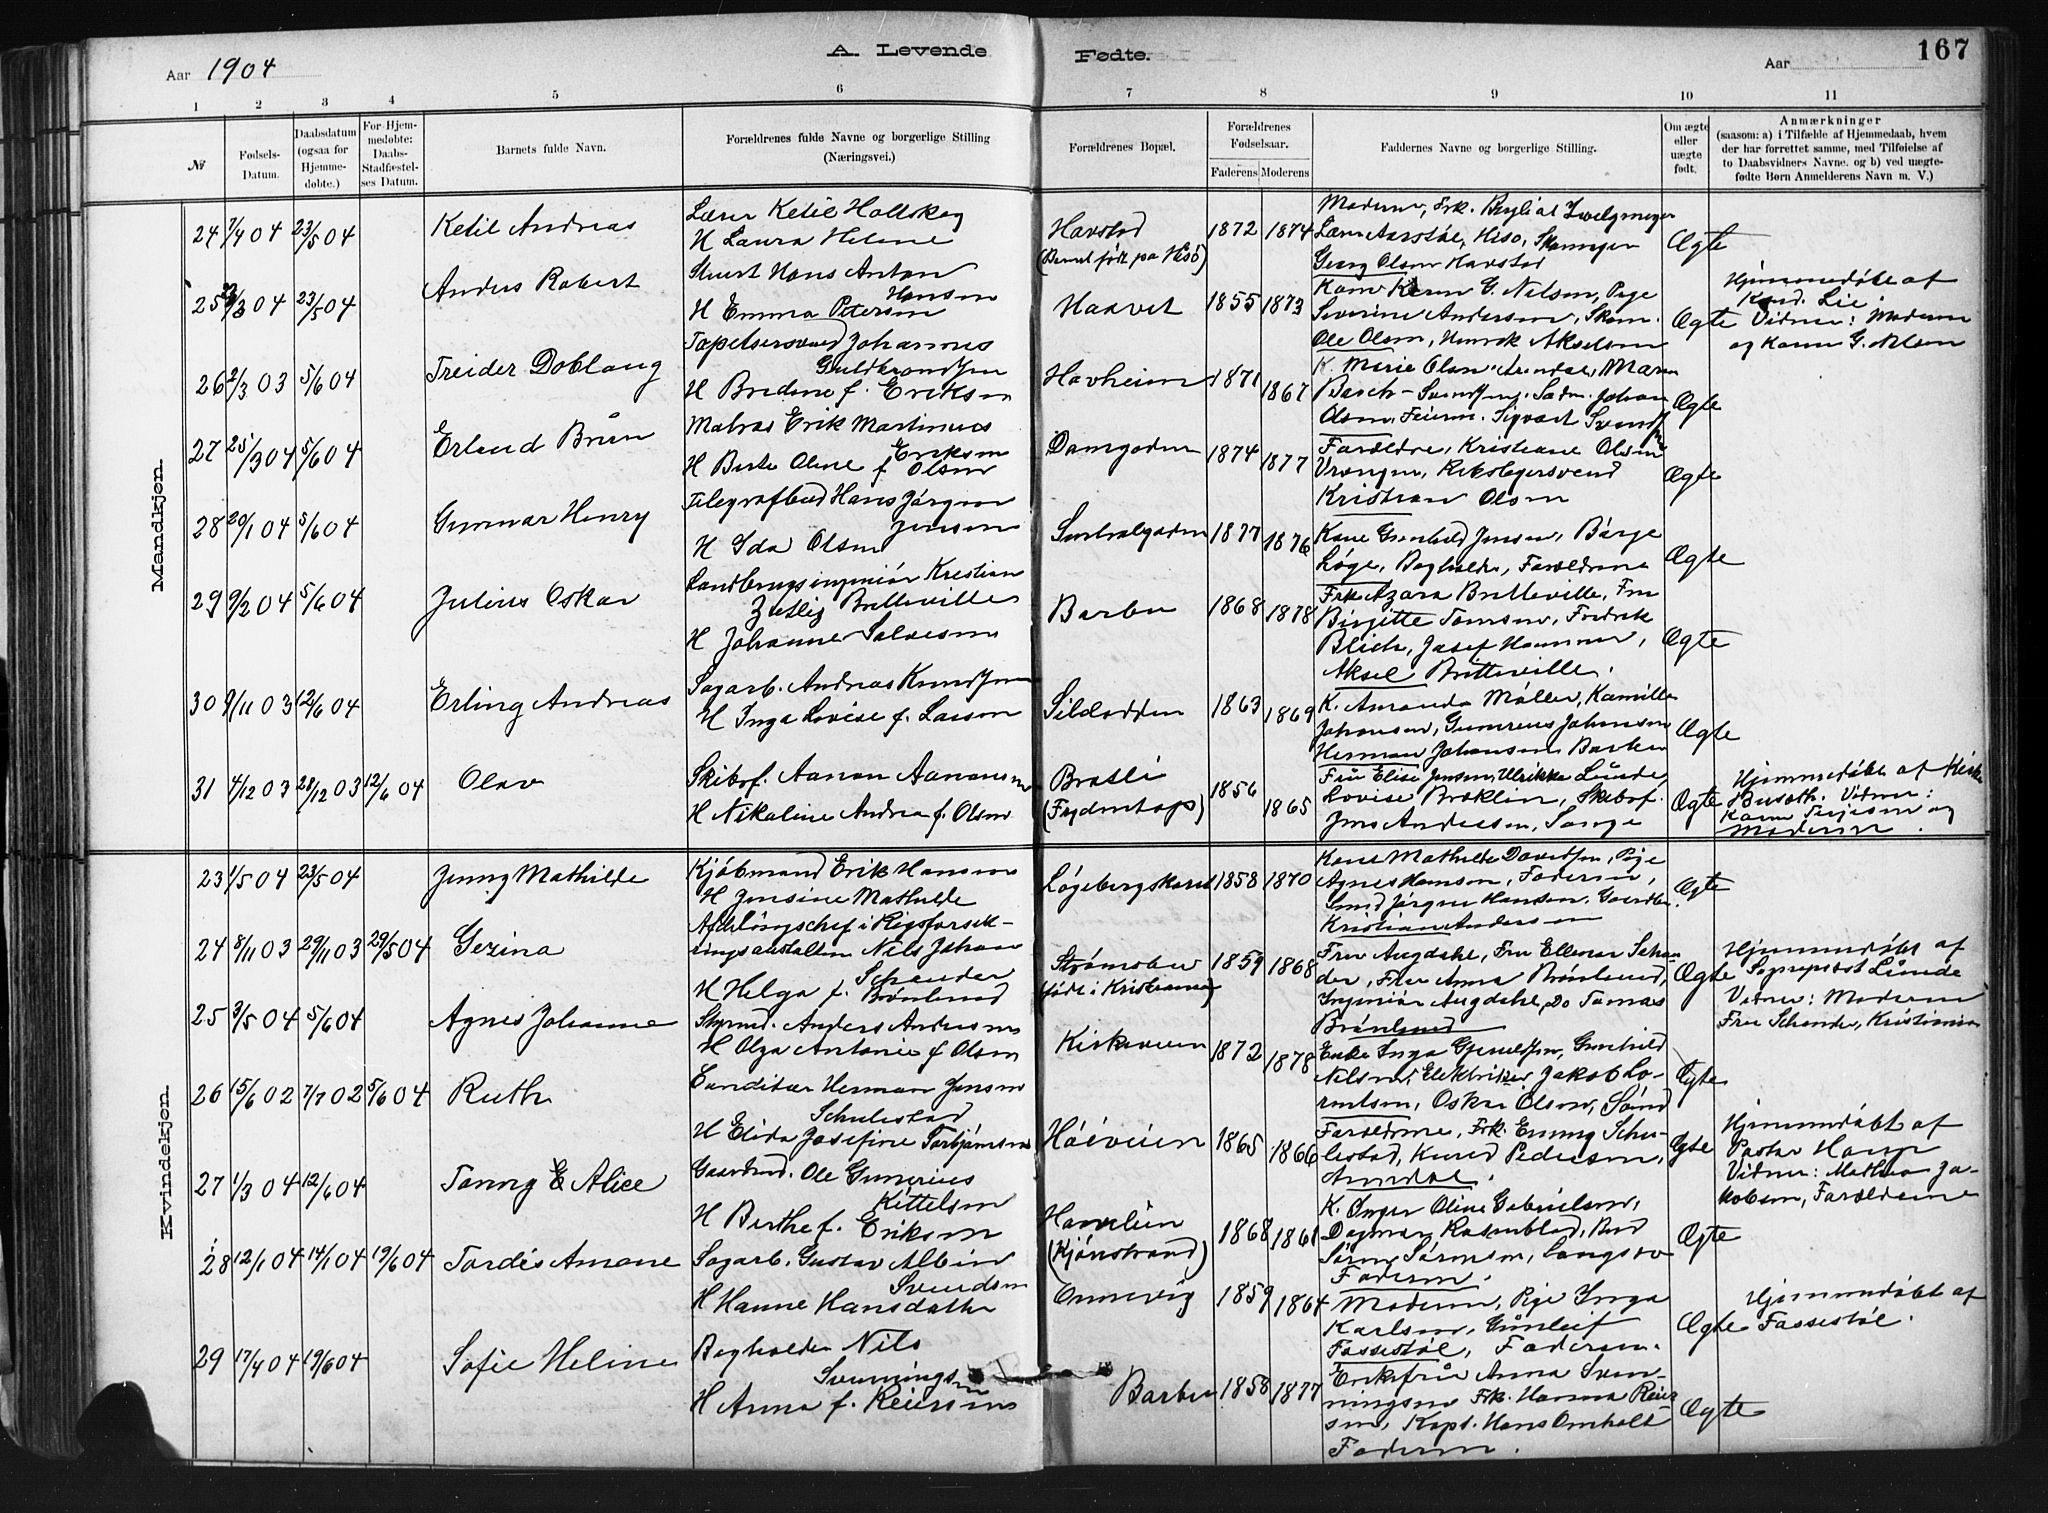 Aar 1904
A. Levende
Fødte.
Aar
167
1 2 3 4 5 6 7 8 9 10 11
№
Fødsels-
Datum.
Daabsdatum
(ogsaa for
Hjemme-
døbte.)
For Hjem-
medøbte:
Daabs-
Stadfæstel-
ses Datum.
Barnets fulde Navn.
Forældrenes fulde Navne og borgerlige Stilling
(Næringsvei.)
Forældrenes Bopæl.
Forældrenes
Fødselsaar.
Faderens Moderens
Faddernes Navne og borgerlige Stilling.
Om ægte
eller
uægte
født.
Anmærkninger
(saasom: a) i Tilfælde af Hjemmedaab, hvem
der har forrettet samme, med Tilføielse af
to Daabsvidners Navne. og b) ved uægte-
fødte Børn Anmelderens Navn m. V.)
Mandkjøn.
24 7/4 04 23/5 04 Ketil Andreas
Lærer Ketil
H Laura Helene
Havstad
1872 1874
Georg Olsen Havstad
Ægte
25 /3 04 23/5 04 Anders Robert
Hans Anton
Hansen
H Emma Petersen
Haavet
1855 1873
Severine Andersen,
Ole Olsen, Henrik Akselsen
Ægte
Hjemmedøbt af
Kand. Lie.
Vidner: Moderen
og Karen G. Nelsen
26 2/3 03 5/6 04 Treider Doblaug
Tapetsersvend Johannes
Guldbrandsen
H Bredine f. Eriksen
Havheim
1871 1867
K. Marie Olsen, Arendal,
Ægte
27 25/3 04 5/6 04 Erland Brun
Matros Erik Martinius
Eriksen
H Berte Oline f Olsen
Damgaden
1874 1877
Forældre, Kristiane Olsen
Vrengen, Rebslagersvend
Kristian Olsen
Ægte
28 20/1 04 5/6 04 Gunnar Henry
Telegrafbud Hans Jørgen
Jensen
H Ida Olsen
1877 1876
Kone Gunhild Jensen, Børge
Løge, Bogholder, Forældrene
Ægte
29 9/2 04 5/6 04 Julius Oskar
Landbrugsingeniør Kristian
Zetlitz Bretteville
H Johanne Salvesen
Barbu
1868 1878
Frk Azora Bretteville, Fru
Birgitte Tomsen, Fredrik
Blich, Josef Hammer,
Aksel Bretteville.
Ægte
30 9/11 03 12/6 04 Erling Andreas
Sagarb. Andreas Knudsen
H Inga Lovise f. Larsen
Sildodden
1863 1869
K. Amanda Møller, Kamilla
Johansen, Gunerius Johansen
Herman Johansen Barbu
Ægte
31 4/12 03 28/12 03 12/6 04 Olav
Skibsf. Aanon Aanonsen
H Nikoline Andrea f. Olsen
Bratli
(Frydentop)
1856 1865
Fru Elise Jensen, Ulrikke Lunde
Lovise Bræklin, Skibsf.
Jens Andersen, Songe
Ægte
Hjemmedøbt af
Vidner:
Karen Terjesen og
Moderen.
Kvindekjøn.
23 1/5 04 23/5 04 Jenny Mathilde
Kjøbmand Erik Hansen
H Jensine Mathilde
Løgebergskaret
1858 1870
Kone Mathilde Davidsen, Pige
Agnes Hansen, Faderen,
Smed Jørgen Hansen,
Kristian Andersen
Ægte
24 8/11 03 29/11 03 29/5 04 Gezina
Afdelingschef i Rigsforsik-
ringsanstalten Nils Johan
Schander
H Helga f. Brønlund
Strømsbu
født i Kristiania
1859 1868
Fru Augdahl, Fru Ellenor Schan-
der, Frk Anna Brønlund,
Ingeniør Augdahl, Do Tomas
Brønlund
Ægte
Hjemmedøbt af
Sogneprest Lunde
Vidner: Moderen
Fru Schander, Kristiania
25 3/5 04 5/6 04 Agnes Johanne
Styrmd. Anders Andersen
H Olga Antonie f Olsen
Kirkeveien
1872 1878
Nelsen, Elektriker Jakob Lo-
rentsen, Oskar Olsen,
Ægte
26 15/6 02 7/7 02 5/6 04 Ruth
Conditor Herman Jensen
Schulestad
H Elida Josefine Torbjørnsen
Høiveien
1865 1866
Forældrene, Frk. Emmy Schu-
lestad, Knud Pedersen,
Arendal.
Ægte
Hjemmedøbt af
Pastor
Vidner: Mathea Ja-
kobsen, Forældrene
27 1/3 04 12/6 04 Tonny E Alice
Gaardmd. Ole Gunerius
Kittelsen
H Berthe f. Eriksen
(Kjønstrand)
1868 1861
K. Inger Oline Gabrielsen,
Dagmar Rosenblad,
Søren Sørensen, Langsæ
Faderen.
Ægte
28 12/1 04 14/1 04 19/6 04 Tordis Amane
Sagarb. Gustav Albin
Svendsen
H Hanne Hansdatter
Ormevig
1859 1864
Moderen, Pige Inga
Karlsen, Gunleif
Fossestøl, Faderen.
Ægte
Hjemmedøbt af
Fossestøl.
29 17/4 04 19/6 04 Sofie Heline
Bogholder Nils
Svenningsen
H Anna f. Reiersen
Barbu
1858 1877
Enkefru Anna Sven-
ningsen Frk. Hanna Reier-
sen, Kapt. Hans Omholt
Faderen.
Ægte